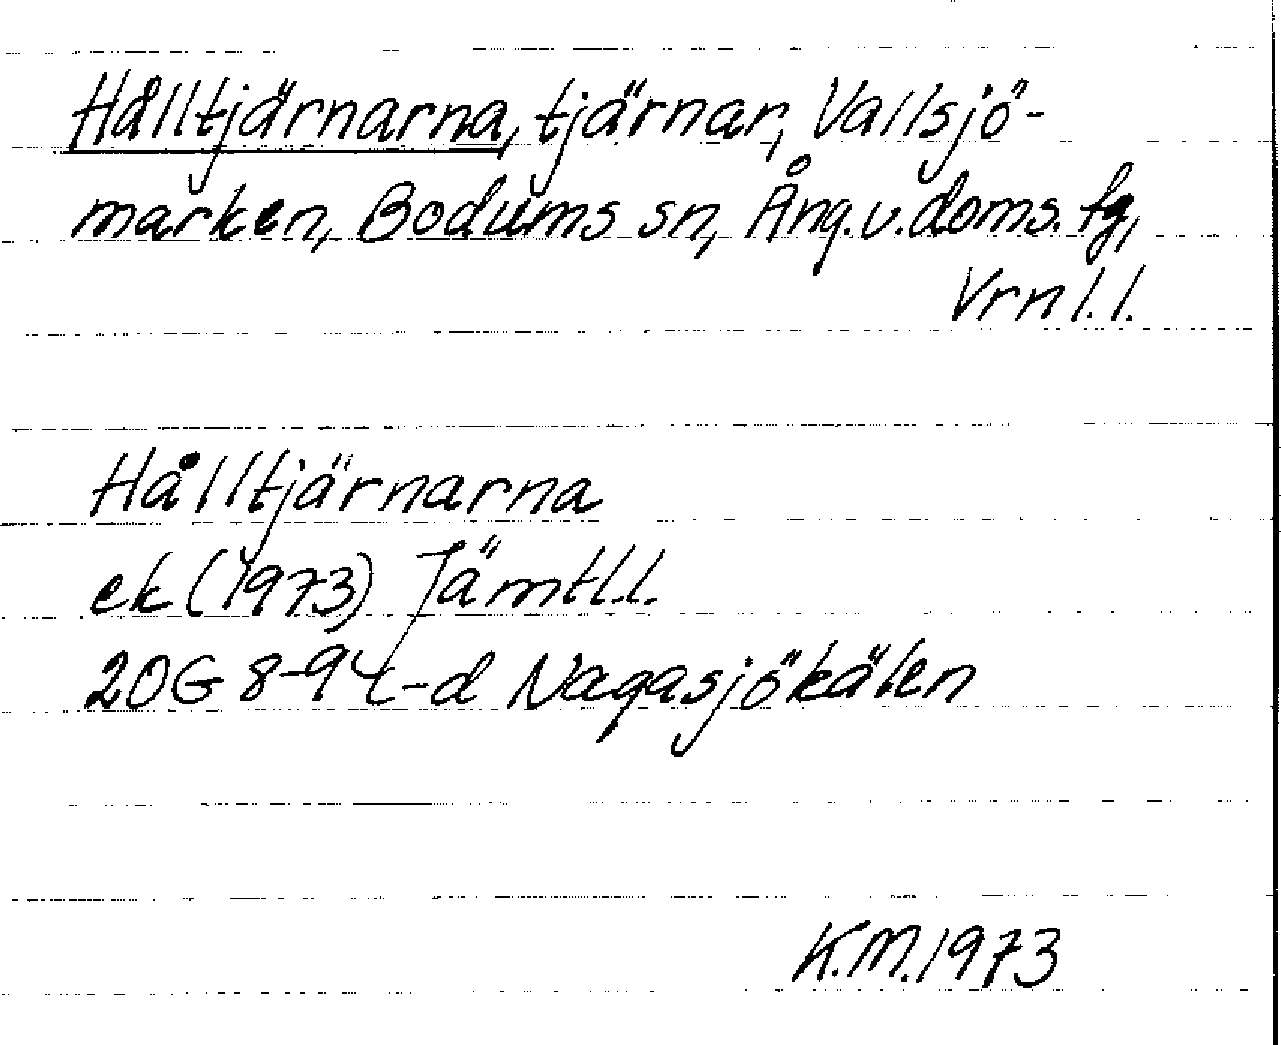 Hålltjärnarna, tjärnar, Vallsjö-
marken, Bodums sn, Ång.v.doms.fg,
Vrnl.l.
Hålltjärnarna
ek (1973) Jämtl.l.
20G 8-9c-d Nagasjökälen
K.M.1973